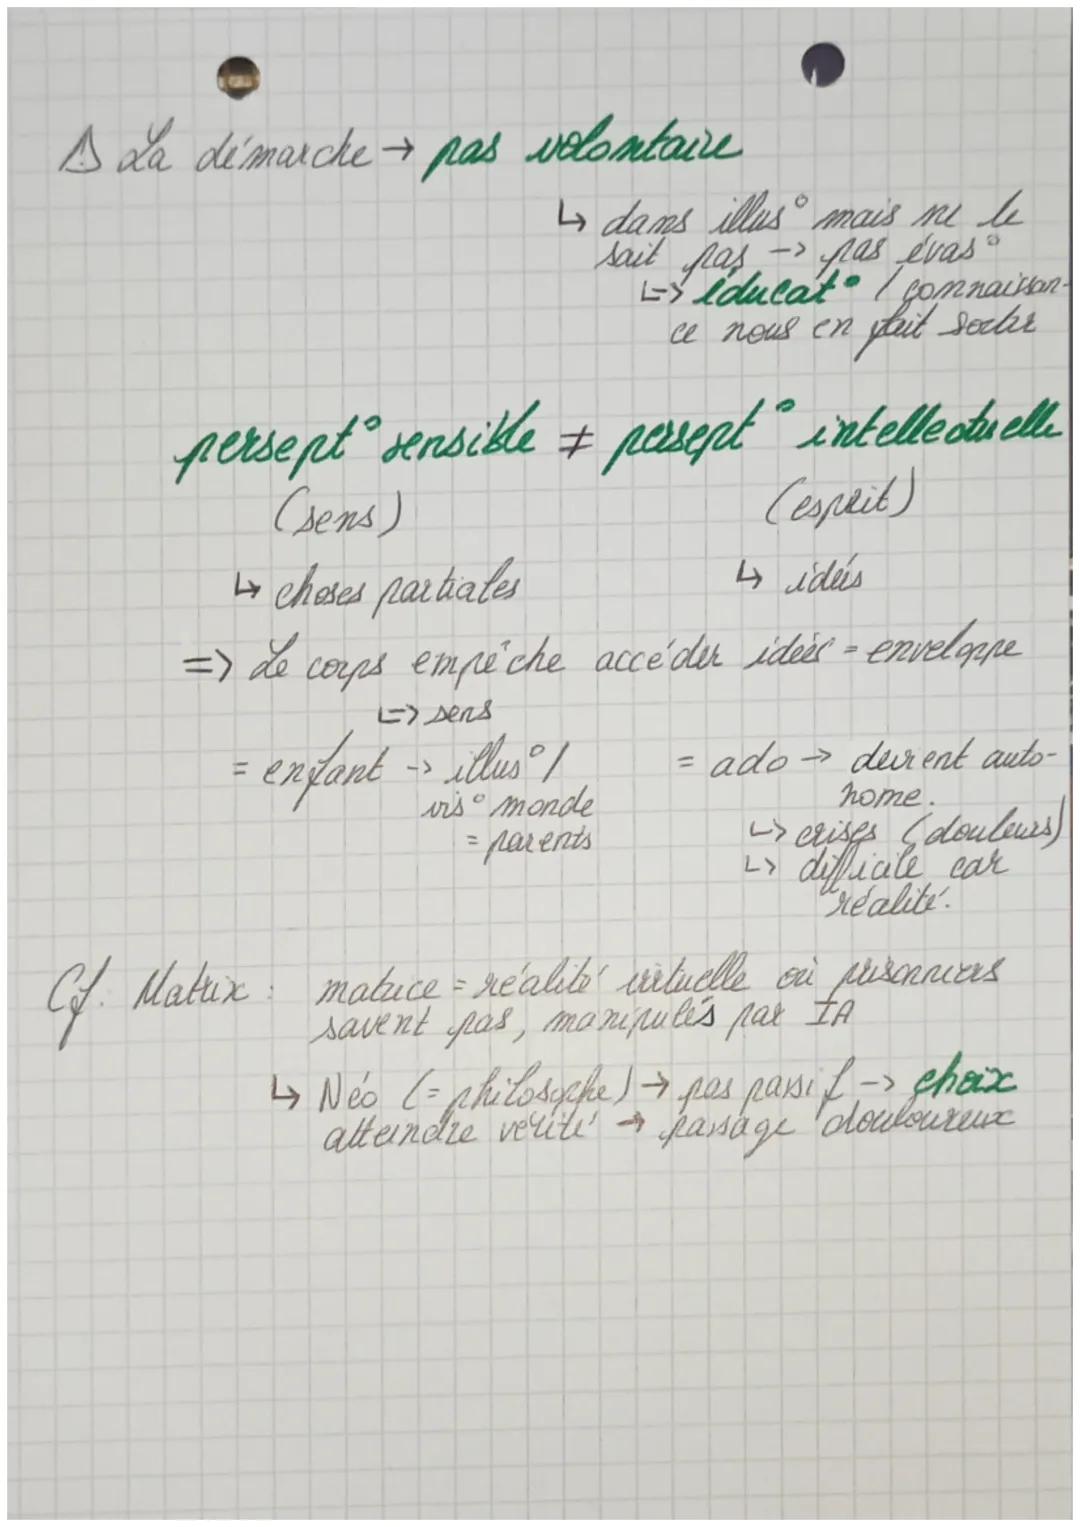 ⚠ La démarche → pas volontaire
↳ dans illus° mais ne le
sait pas -> pas évas°
↳ éducat° / connaissan-
ce nous en fait sortir
persept° sensible ≠ persept° intellectuelle
(sens) (esprit)
↳ choses partiales ↳ idées
=> Le corps empêche accéder idées = enveloppe
↳ sens
= enfant -> illus° / = ado -> devient auto-
vis° monde nome.
= parents ↳ crises (douleurs)
↳ difficile car
réalité.
Cf. Matrix : matrice = réalité virtuelle où prisonniers
savent pas, manipulés par IA
↳ Néo (= philosophe) -> pas passif -> choix
atteindre vérité -> passage douloureux